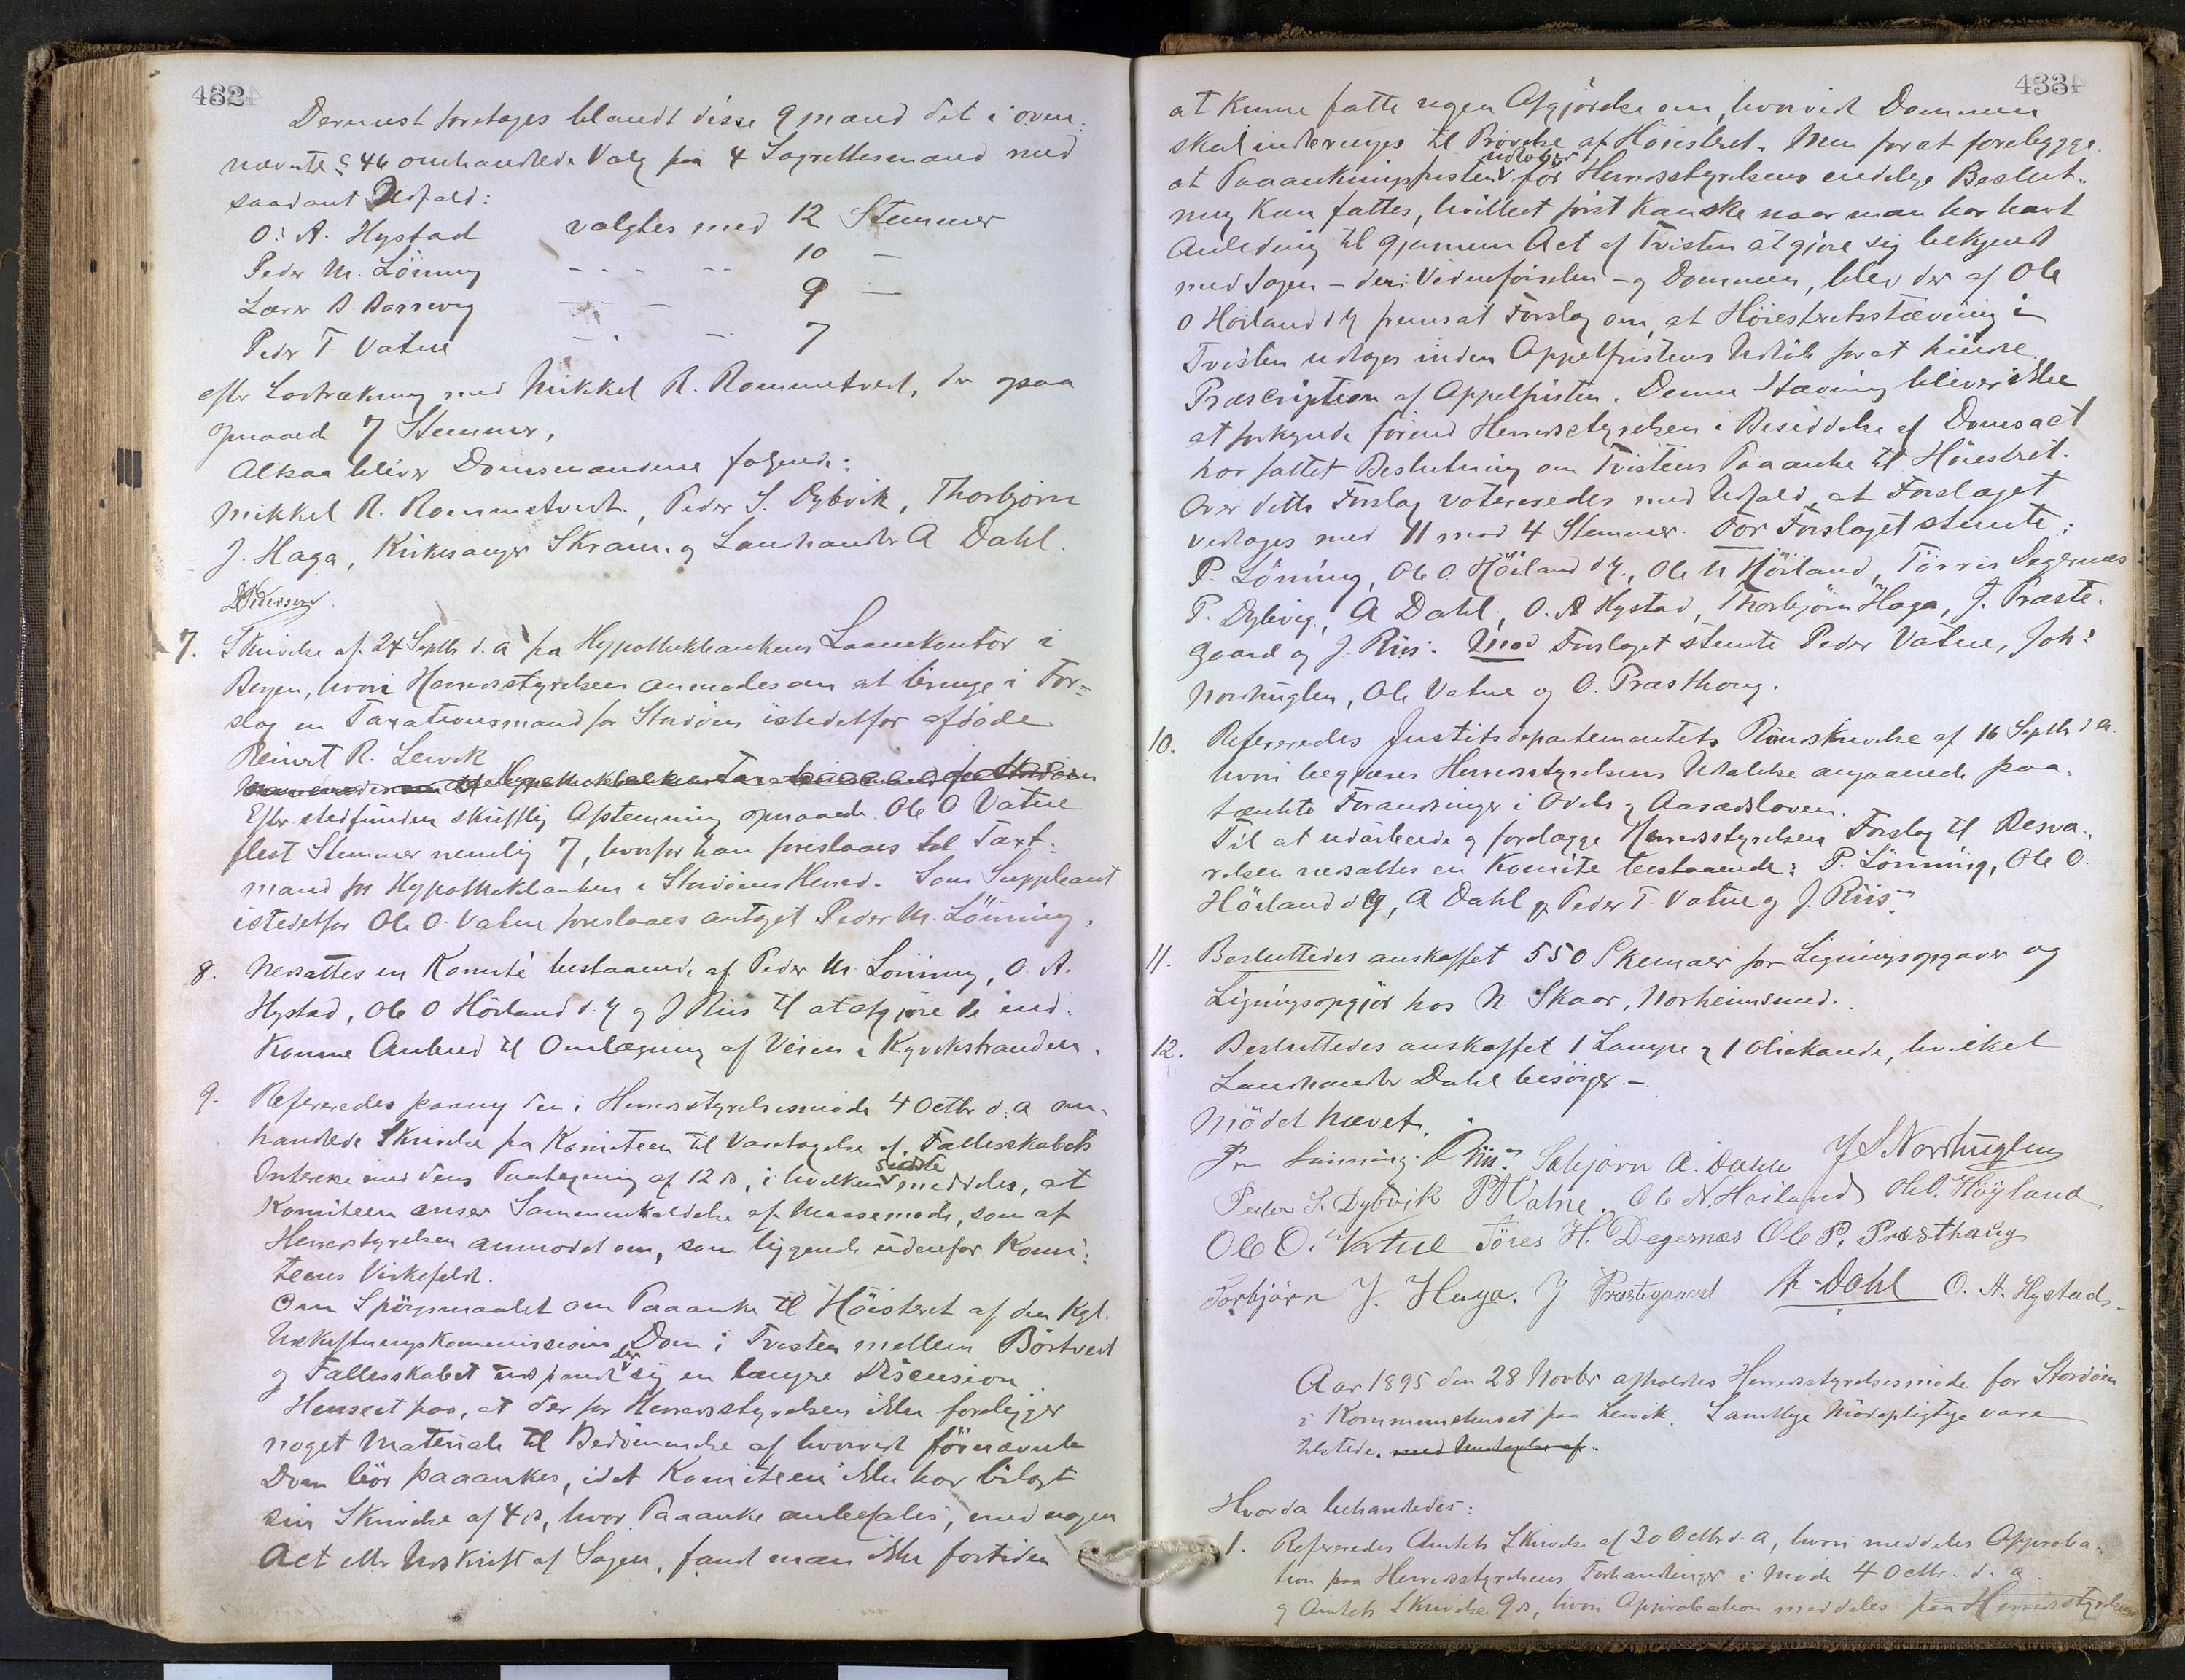 432
Dernæst foretoges blandt disse 9 mænd det i oven-
nævnte § 46 omhandlede Valg paa 4 Lagrettesmænd med
saadant Udfald:
O. A. Hystad valgtes med 12 Stemmer
Peder M. Lönning - - - - - 10 -
Lærer B. - - - 9 -
Peder T. Vatne - - - 7
efter Lodtrækning med Mikkel R. Rommetvedt, der ogsaa
opnaaede 7 Stemmer.
Altsaa bliver Domsmændene følgende:
Mikkel R. Rommetvedt, Peder S. Dybvik, Thorbjørn
J. Haga, Kirkesanger Skram og Landhandler A Dahl.
7. Skrivelse af 24 Septbr d.a fra Hypothekbankens Laanekontor i
Bergen, hvori Herredsstyrelsen anmodes om at bringe i For-
slag en Taxationsmand for Stordöen istedetfor afdöde
Reinert R. Lervik
Efter stedfunden skriftlig Afstemning opnaaede Ole O Vatne
flest Stemmer nemlig 7, hvorfor han foreslaaes til Taxt-
mand for Hypothekbanken i Stordöens Herred. Som Suppleant
istedetfor Ole O. Vatne foreslaaes antaget Peder M. Lönning.
8. Nedsattes en Komité bestaaende af Peder M. Lönning, O. A.
Hystad, Ole O Höiland d. y og J Riis til at afgjøre de ind-
komne Anbud til Omlægning af Veien i Kyvikstranden.
9. Refereredes paany den i Herredsstyrelsesmøde 4 Octbr d. a om-
handlede Skrivelse fra Komiteen til Varetagelse af Fællesskabets
Interesse med dens Paategning af 12 ds, i hvilken sidste meddeles, at
Komiteen anser Sammenkaldelse af Massemøde, som af
Herredsstyrelsen anmodet om, som liggende udenfor Komi-
teens Virkefeldt.
Om Spörgsmaalet om Paaanke til Höiesteret af den Kgl.
Udskiftningskommissions Dom i Tvisten mellem Börtvedt
og Fællesskabet udspandt der sig en længre Discusion
Henseet paa, at der for Herredsstyrelsen ikke foreligger
noget Materiale til Bedömmelse af hvorvidt förnævnte
Dom bör paaankes, idet Komiteen ikke har bilagt
sin Skrivelse af 4 ds, hvor Paaanke anbefales, med nogen
Act eller Udskrift af Sagen, fandt man ikke fortiden
433
at kunne fatte nogen Afgjörelse om, hvorvidt Dommen
skal inderinges til Prövelse af Höiesteret. Men for at forebygge
at Paaankningsfristen udløber för Herredsstyrelsens endelige Beslut-
ning kan fattes, hvilket först kan ske naar man har havt
Anledning til gjennem Act af Tvisten at gjøre sig bekjendt
med Sagen - deri Vidneförselen - og Dommen, blev der af Ole
O Höiland d y fremsat Forslag om, at Höiesteretsstævning i
Tvisten udtages inden Appelfristens Udløb for at hindre
Præscription af Appelfristen. Denne Stævning bliver ikke
at forkynde förend Herredsstyrelsen i Besiddelse af Domsact
har fattet Beslutning om Tvistens Paaanke til Höiesteret.
Over dette Forslag voteredes med Udfald, at Forslaget
vedtoges med 11 mod 4 Stemmer. For Forslaget stemte:
P. Lönning, Ole O. Höiland d y., Ole N Höiland, Törris Degernæs
P. Dybvig, A Dahl, O. A Hystad, Thorbjörn Haga, J. Præste-
gaard og J. Riis. Mod Forslaget stemte Peder Vatne, Joh:
Nordhuglen, Ole Vatne og O. Præsthoug.
10. Refereredes Justitsdepartementets Rundskrivelse af 16 Septbr d a.
hvori begjæres Herredsstyrelsens Udtalelse angaaende paa-
tænkte Forandringer i Odels og Aasædesloven.
Til at udarbeide og forelægge Herredsstyrelsen Forslag til Besva-
relsen nedsattes en Komite bestaaende: P. Lönning, Ole O.
Höiland d y, A Dahl, Peder T. Vatne og J. Riis.
11. Besluttedes anskaffet 550 Skemaer for Ligningsopgaver og
Ligningsopgjör hos N Skaar, Norheimsund.
12. Besluttedes anskaffet 1 Lampe og 1 Oliekande, hvilket
Landhandler Dahl besörger. -
Mödet hævet.
Lönning. Riis. A. Dahle J S Nordhuglen
Peder S. Dybvik P T Vatne. Ole N. Hoiland Ole O. Höyland
Ole O. Vatne Töres H. Degernæs Ole P. Præsthaug
Torbjörn J. Haga. J Præstegaard A. Dahl O. A. Hystad.
Aar 1895 den 28 Novbr afholdtes Herredsstyrelsesmøde for Stordöen
i Kommunehuset paa Lervik. Samtlige Mödepligtige vare
tilstede. med Undtagelse af.
Hvorda behandledes:
1. Refereredes Amtets Skrivelse af 30 Octbr d. a, hvori meddeles Approba-
tion paa Herredsstyrelsens Forhandlinger i Møde 4 Octbr. d. a.
og Amtets Skrivelse 9 ds, hvori Approbation meddeles paa Herredsstyrelsens